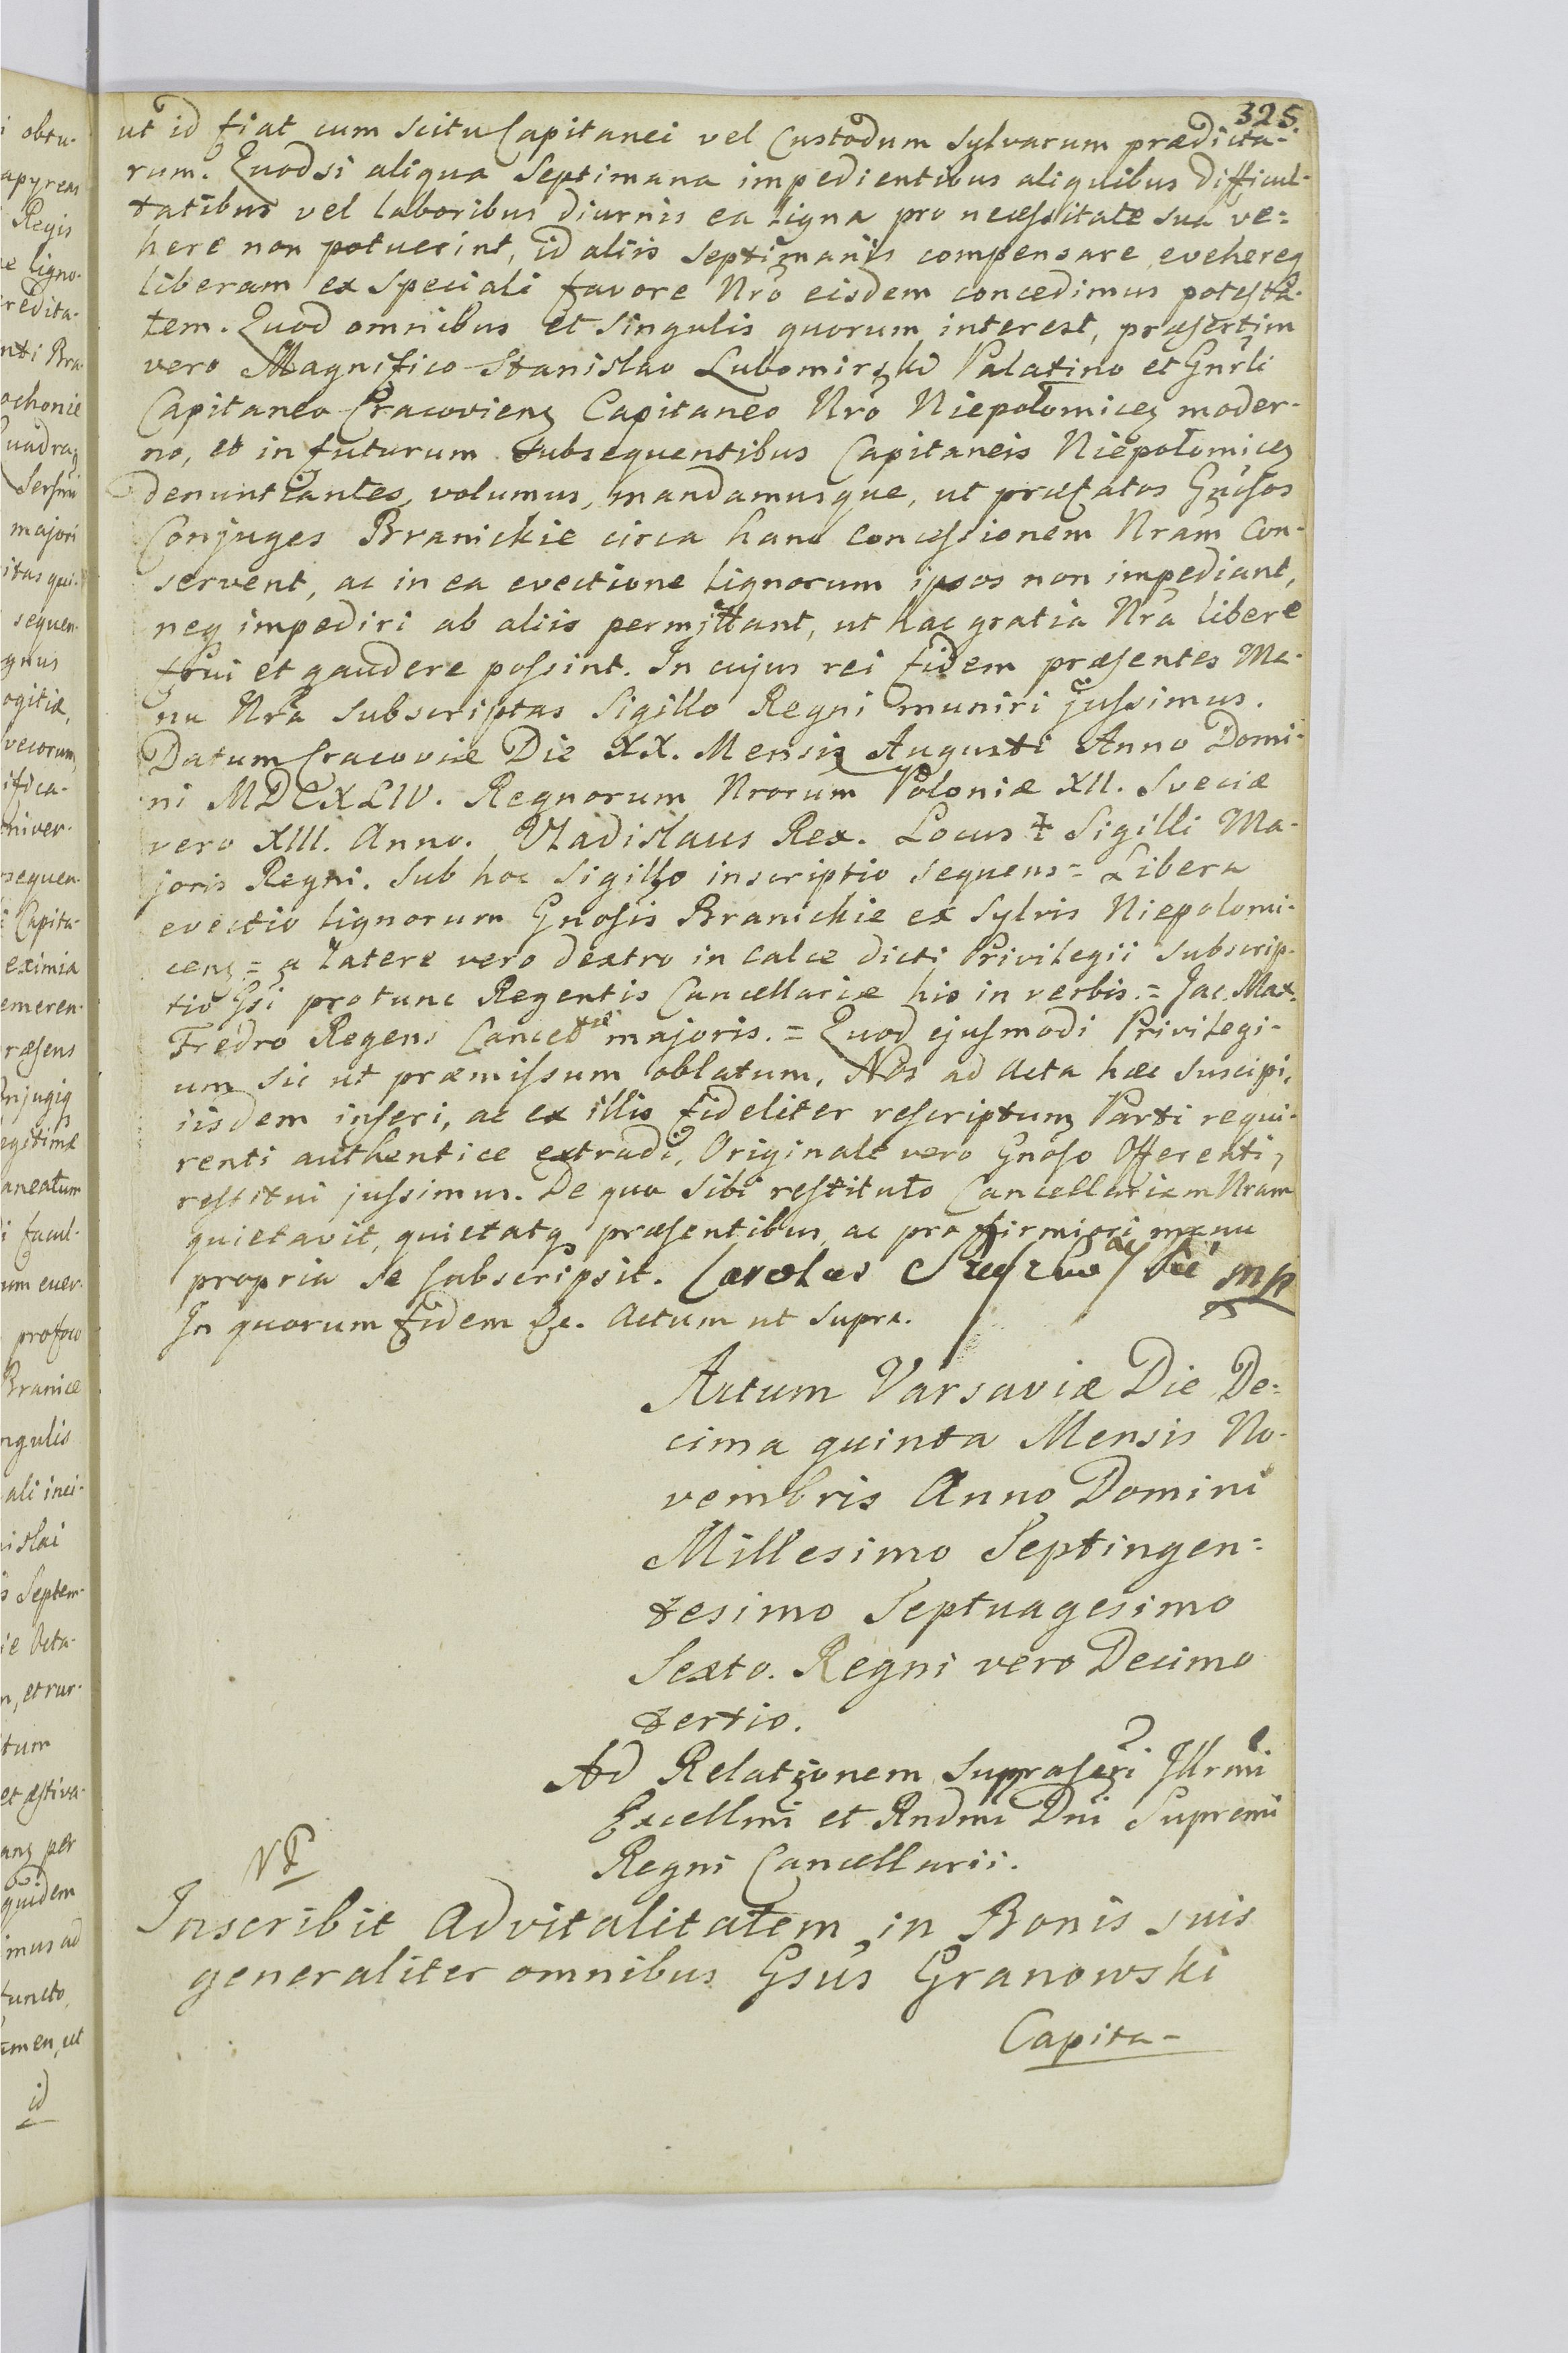 325
ut id fiat cum scitu Capitanei vel Custodum Sylvarum prædicta-
rum. Quodsi aliqua Septimana impedientibus aliquibus difficul-
tatibus vel laboribus diurnis ea ligna pro necessitate sua ve=
here non potuerint, id aliis septimanis compensare evehereq
liberam ex speciali favore Nrõ eisdem concedimus potesta-
tem. Quod omnibus et singulis quorum interest, præsertim
vero Magnifico Stanislao Lubomirski Palatino et Gnrli
Capitaneo Cracovienz Capitaneo Nrõ Niepołomicez moder-
no, et in futurum subsequentibus Capitaneis Niepołomicez
denuntiantes, volumus, mandamusque, ut præfatos Gnosos
Conjuges Branickie circa hanc concessionem Nram con-
servent, ac in ea evectione lignorum ipsos non impediant,
neq impediri ab aliis permittant, ut hac gratia Nrã libere
frui et gaudere possint. In cujus rei fidem præsentes Ma-
nu Nrã subscriptas Sigillo Regni muniri jussimus.
Datum Cracoviæ Die XX. Mensis Augusti Anno Domi-
ni MDCXLIV. Regnorum Nrorum Poloniæ XII. Sveciæ
vero XIII. Anno. Vladislaus Rex. Locus ‡ Sigilli Ma-
joris Regni. Sub hoc Sigillo inscriptio sequens = Libera
evectio lignorum Gnosis Branickie ex Sylvis Niepolomi-
cenz = a latere vero dextro in calce dicti Privilegii subscrip-
tio Gsi protunc Regentis Cancellariæ his in verbis. = Jac. Max.
Fredro Regens Cancellriæ majoris. = Quod ejusmodi Privilegi-
um sic ut præmissum oblatum, Nos ad Acta hæc suscipi,
iisdem inseri, ac ex illis fideliter rescriptum Parti requi-
renti authentice extradi, Originale vero Gnoso Offerenti,
restitui jussimus. De quo sibi restituto Cancellariam Nram
quietavit, quietatq præsentibus, ac pro firmiori manu
propria se subscripsit. Carolus mp
In quorum fidem &c. Actum ut supra.
Actum Varsaviæ Die De=
cima quinta Mensis No-
vembris Anno Domini
Millesimo Septingen=
tesimo Septuagesimo
Sexto. Regni vero Decimo
tertio.
Ad Relationem supraseri Illrmi
Excellmi et Rndmi Dni Supremi
Regni Cancellarii.
Inscribit Advitalitatem in Bonis suis
generaliter omnibus Gsus Granowski
Capita-